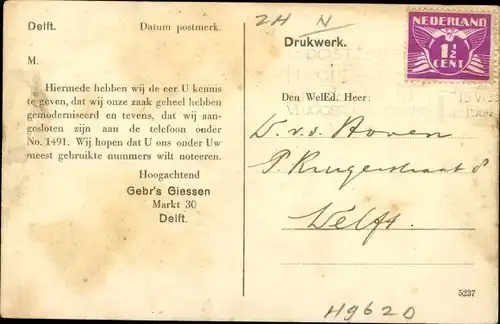 Delft. Datum postmerk.
M.
Hiermede hebben wij de eer U kennis
te geven, dat wij onze zaak geheel hebben
gemoderniseerd en tevens, dat wij aan-
gesloten zijn aan de telefoon onder
No. 1491. Wij hopen dat U ons onder Uw
meest gebruikte nummers wilt noteeren.
Hoogachtend
Gebr's Giessen
Markt 30
Delft.
2H N
Drukwerk.
NEDERLAND
1½
CENT
Den WelEd. Heer:
W. v. d. Hoven
P. Krugerstraat 8
Delft.
5237
H9620